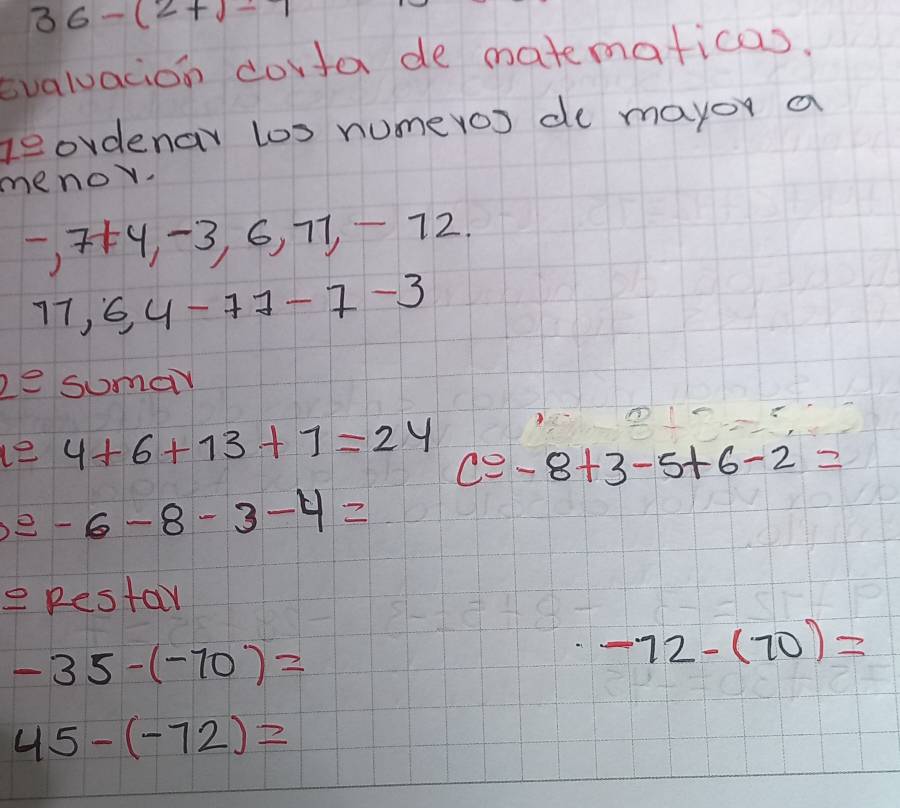 36-(27)=
Evaluación corta de matematicas.
1º ordenar los numeros de mayor a
menor.
-,7+4,-3,6,11,-12.
11,6,4-11-7-3
2º sumar
4+6+13+1=24
C=-8+3-5+6-2=
-6-8-3-4=
Restar
-35-(-10)=
-12-(10)=
45-(-12)=